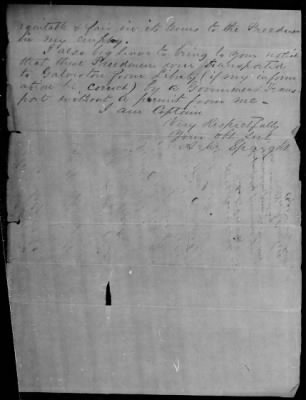 equitable & fair in its terms to the Freedmen
in my employ.
I also beg leave to bring to your notice
that these Freedmen were transported
to Galveston from Liberty (if my inform
ation be correct) by a Government Trans
port without a permit from me.
I am Captain
Very Respectfully
Your Obt Servt
Spaight